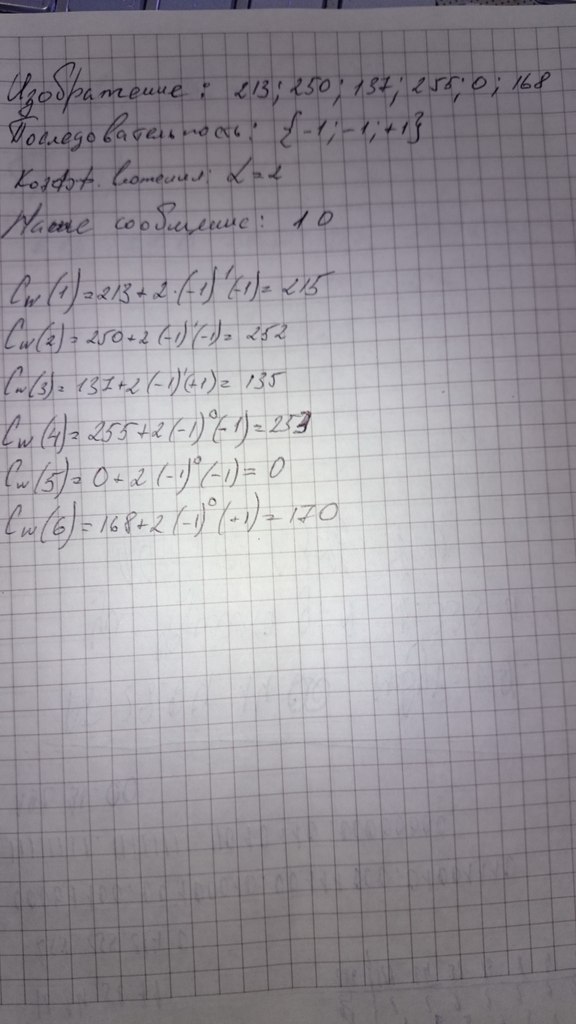 Изображение: 213; 250; 137; 255; 0; 168
Последовательность: {-1; -1; +1}
Коэфф. вложения: α=2
Наше сообщение: 10
Cw(1)=213+2·(-1)¹(-1)=215
Cw(2)=250+2(-1)¹(-1)=252
Cw(3)=137+2(-1)¹(+1)=135
Cw(4)=255+2(-1)⁰(-1)=253
Cw(5)=0+2(-1)⁰(-1)=0
Cw(6)=168+2(-1)⁰(+1)=170